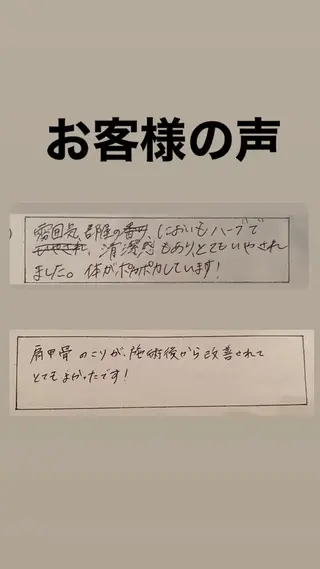 お客様の声
雰囲気、部屋の香り、においもハーブで
いやされ、清潔感もあり、とてもいやされ
ました。体がポカポカしています!
肩甲骨のこりが、施術後から改善されて
とてもよかったです!